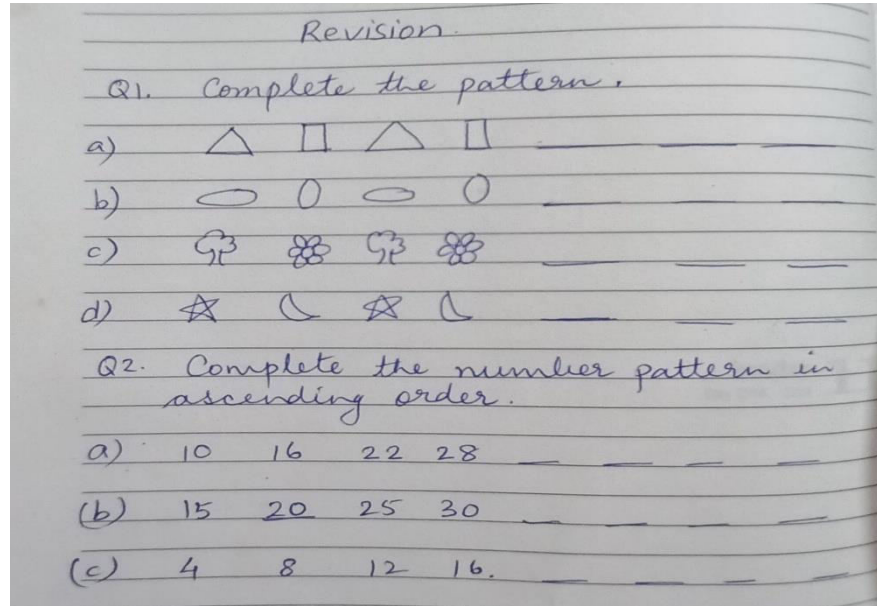 Revision.
Q1. Complete the pattern.
a)
b)
c)
d)
Q2. Complete the number pattern in
ascending order.
a) 10 16 22 28
(b) 15 20 25 30
(c) 4 8 12 16.